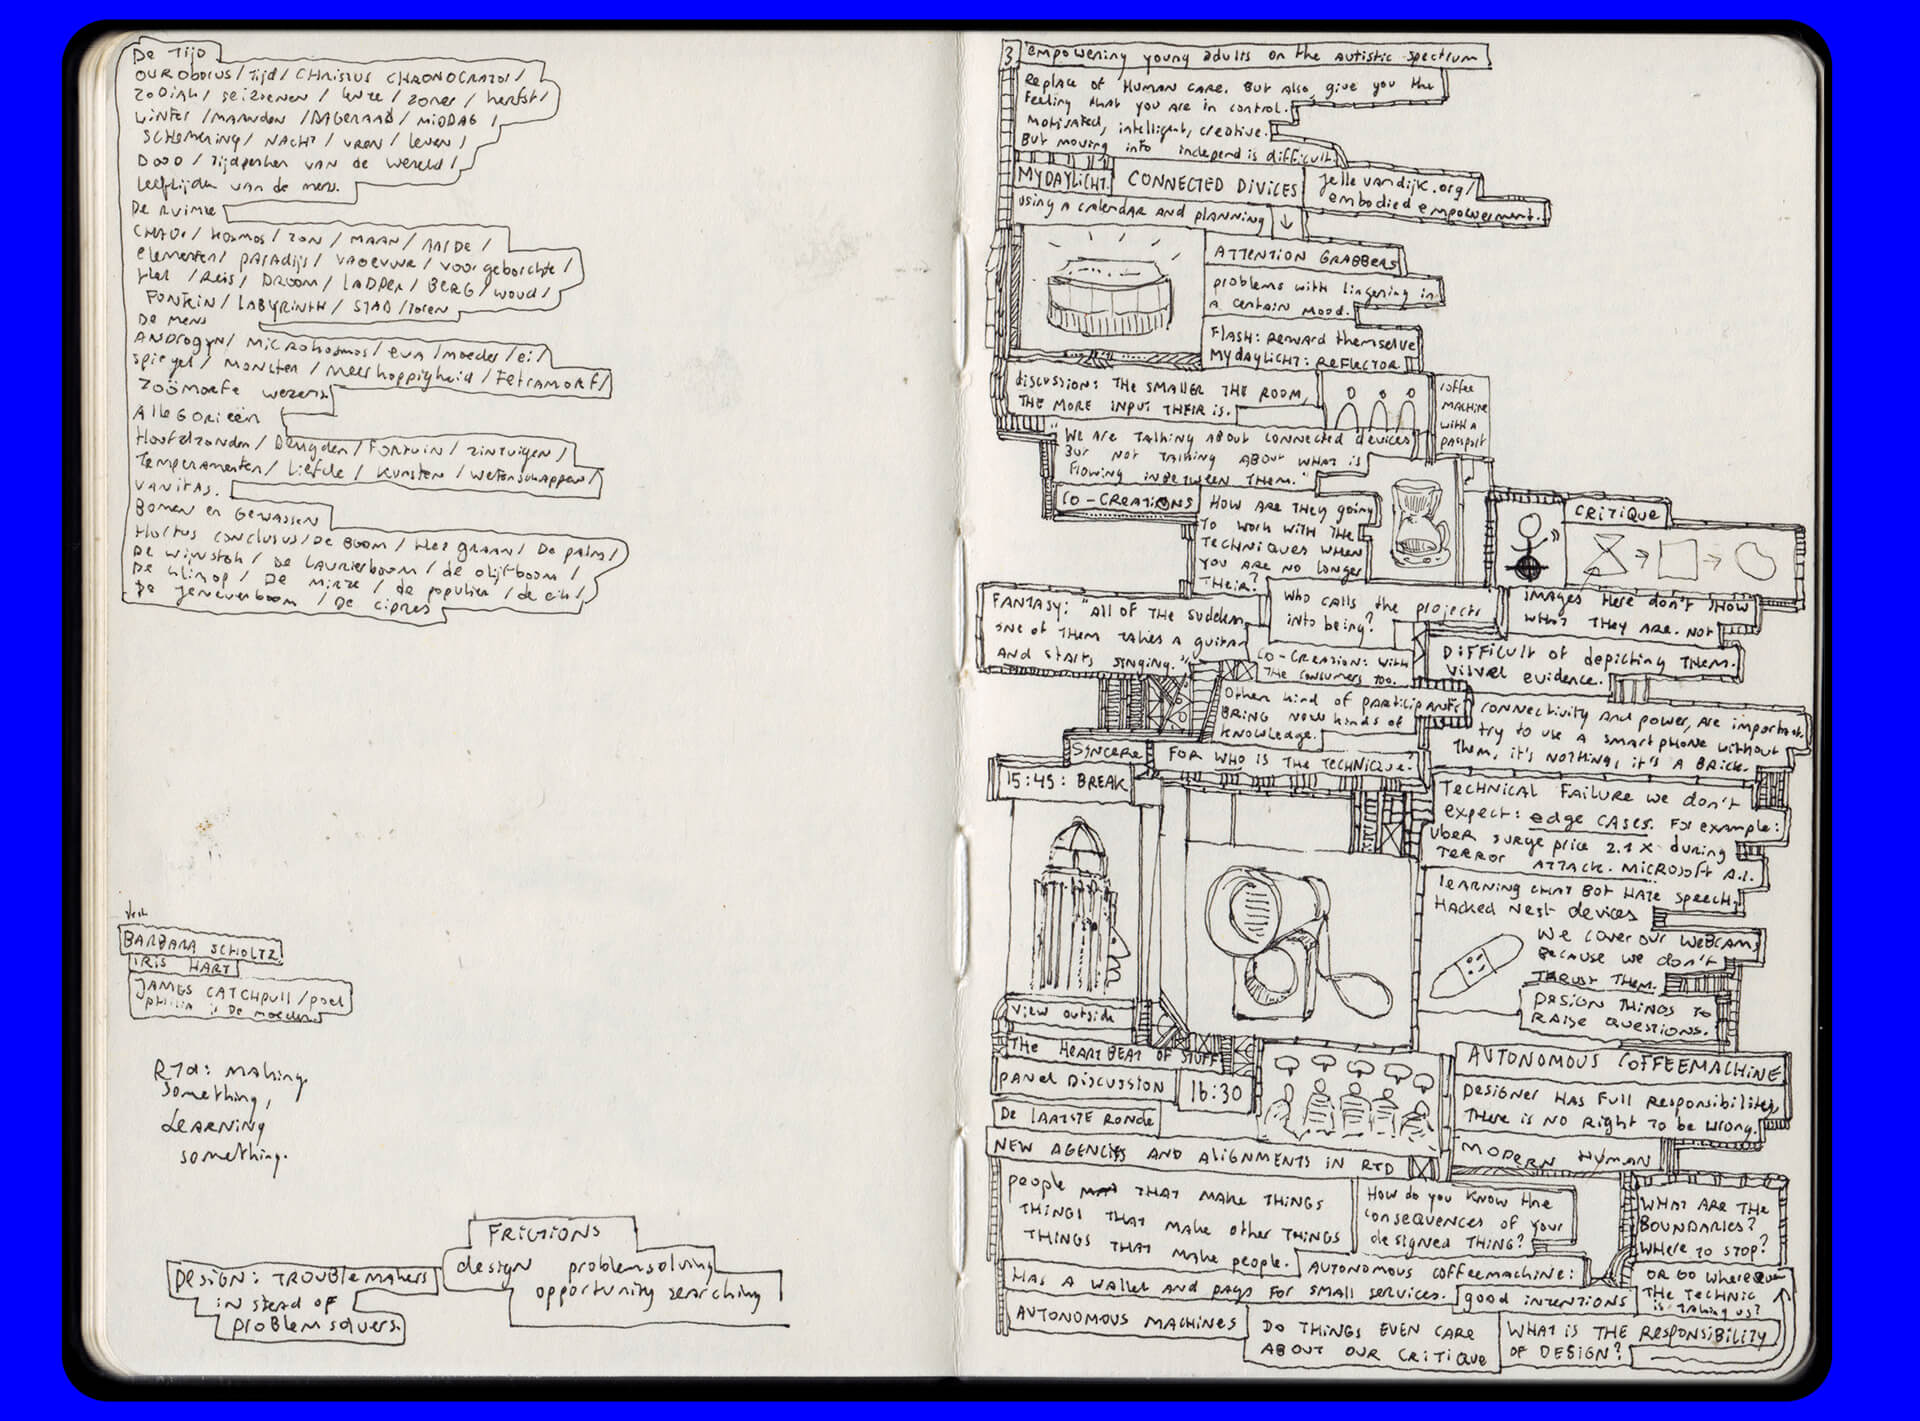 De Tijd
OUROBORUS / Tijd / CHRISTUS CHRONOCRATOR /
ZODIAK / SEIZOENEN / Lente / zomer / herfst /
winter / maanden / DAGERAAD / MIDDAG /
SCHEMERING / NACHT / UREN / Leven /
DOOD / Tijdperken van de wereld /
Leeftijden van de mens.
De Ruimte
CHAOS / kosmos / zon / MAAN / AARDE /
elementen / PARADIJS / VAGEVUUR / voorgeborchte /
Hel / Reis / DROOM / LADDER / BERG / woud /
FONTEIN / LABYRINTH / STAD / Toren
De mens
ANDROGYN / MICROKOSMOS / eva / moeder / ei /
spiegel / MONSTER / Meerkoppigheid / TETRAMORF /
Zoömorfe wezens.
AlleGORieën
Hoofdzonden / Deugden / FORTUIN / zintuigen /
Temperamenten / Liefde / Kunsten / wetenschappen /
VANITAS.
Bomen en Gewassen
Hortus conclusus / De Boom / Het graan / De palm /
De wijnstok / De LAURIERBOOM / de olijfboom /
De klimop / De mirte / de populier / de eik /
De Jeneverboom / De cipres
BARBARA SCHOLTZ
IRIS HART
JAMES CATCHPULL / poel
philia is De moeder.
RTd: MAKING
something,
LEARNING
something.
FRICTIONS
design problemsolving
opportunity searching
DESIGN: TROUBLEMAKERS
in stead of
problemsolvers.
3 empowering young adults on the autistic spectrum
Replace of HUMAN CARE. BUT Also, give you the
feeling that you are in control.
motivated, intelligent, creative.
But moving into independ is difficult.
MYDAYLICHT. CONNECTED DIVICES
jellevandijk.org/
embodiedempowerment.
using a calendar and planning ↓
ATTENTION GRABBERS
problems with lingering in
a certain mood.
Flash: Reward themselve
MYDAYLICHT: REFLECTOR
discussion: THE SMALLER THE ROOM,
THE MORE INPUT THEIR is.
coffee
MACHINE
with a
passport
"We are TALKING ABOUT connected devices
But not TALKING ABOUT WHAT is
flowing inbetween THEM."
CO-CREATIONS
HOW ARE THEY going
TO WORK WITH THE
TECHNIQUES WHEN
YOU ARE NO LONGER
THEIR?
CRITIQUE
IMAGES Here don't SHOW
WHAT THEY ARE. NOT
Difficult of depicting THEM.
visuel evidence.
FANTASY: "All of THE sudden
one of them takes a guitar
AND starts singing."
Who calls the projects
into being?
CO-CREATION: with
THE consumers too.
Other kind of participants
BRING new kinds of
knowledge.
Connectivity and power, are important.
try to use A smartphone without
Them, it's nothing, it's A BRICK.
SINCERE FOR WHO IS THE TECHNIQUE?
15:45: BREAK
TECHNICAL FAILURE we don't
expect: edge CASES. For example:
Uber surge price 2.1 x during
TERROR ATTACK. MICROSOFT A.I.
learning chat bot HATE speech,
HACKED Nest devices
We cover our WEBCAMS
Because we don't
THRUST THEM.
DESIGN THINGS TO
RAISE questions.
View outside
THE HEARTBEAT OF STUFF
Panel DISCUSSION 16:30
AUTONOMOUS COFFEEMACHINE
Designer HAS FULL Responsibilities,
THERE is NO Right TO be wrong.
MODERN HUMAN
De LAATSTE RONDE
NEW AGENCIES AND AlIGNMENTS IN RTD
people THAT MAKE THINGS
THINGS THAT MAKE other THINGS
THINGS THAT MAKE people.
How do you know the
consequences of your
designed THING?
WHAT ARE THE
BOUNDARIES?
WHERE TO STOP?
OR GO Where
THE TECHNIC
is TAKING US?
AUTONOMOUS COFFEEMACHINE:
HAS A WALLET and pays FOR small services.
good intentions
AUTONOMOUS MACHINES
DO THINGS EVEN CARE
ABOUT OUR CRITIQUE
WHAT IS THE RESPONSIBILITY
OF DESIGN?